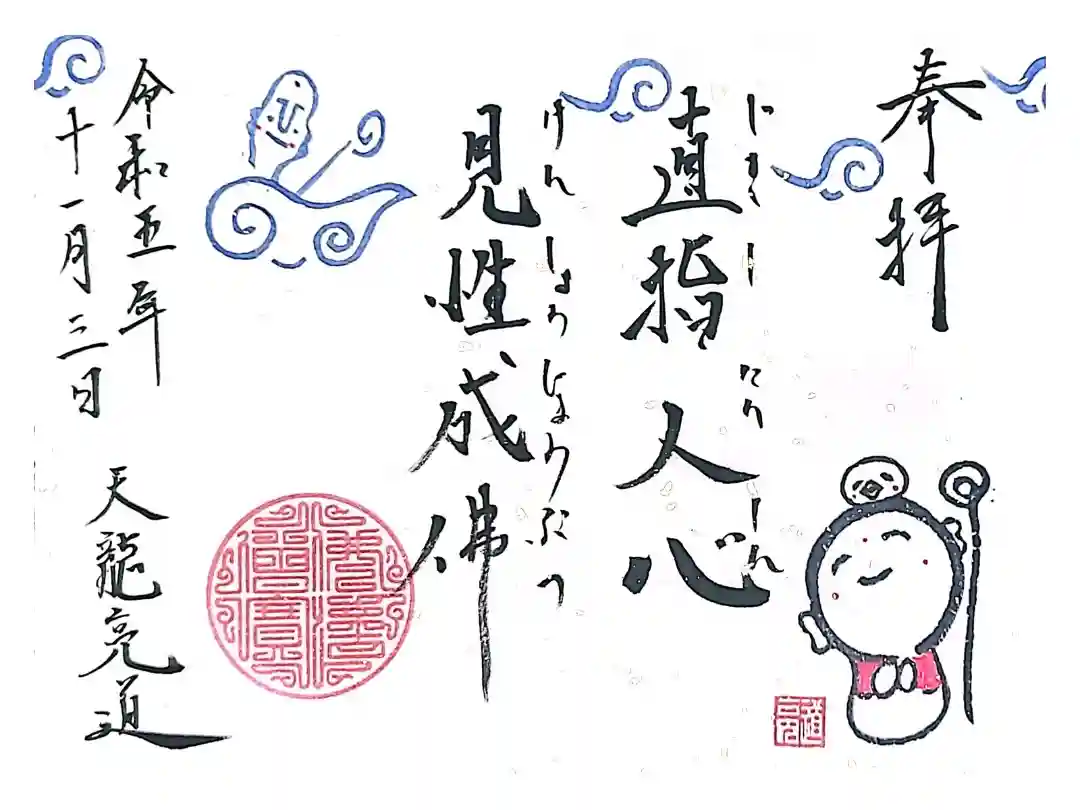 奉拝
じきしにんしん
直指人心
けんしょうじょうぶつ
見性成佛
令和五年
十一月三日
天龍亮道